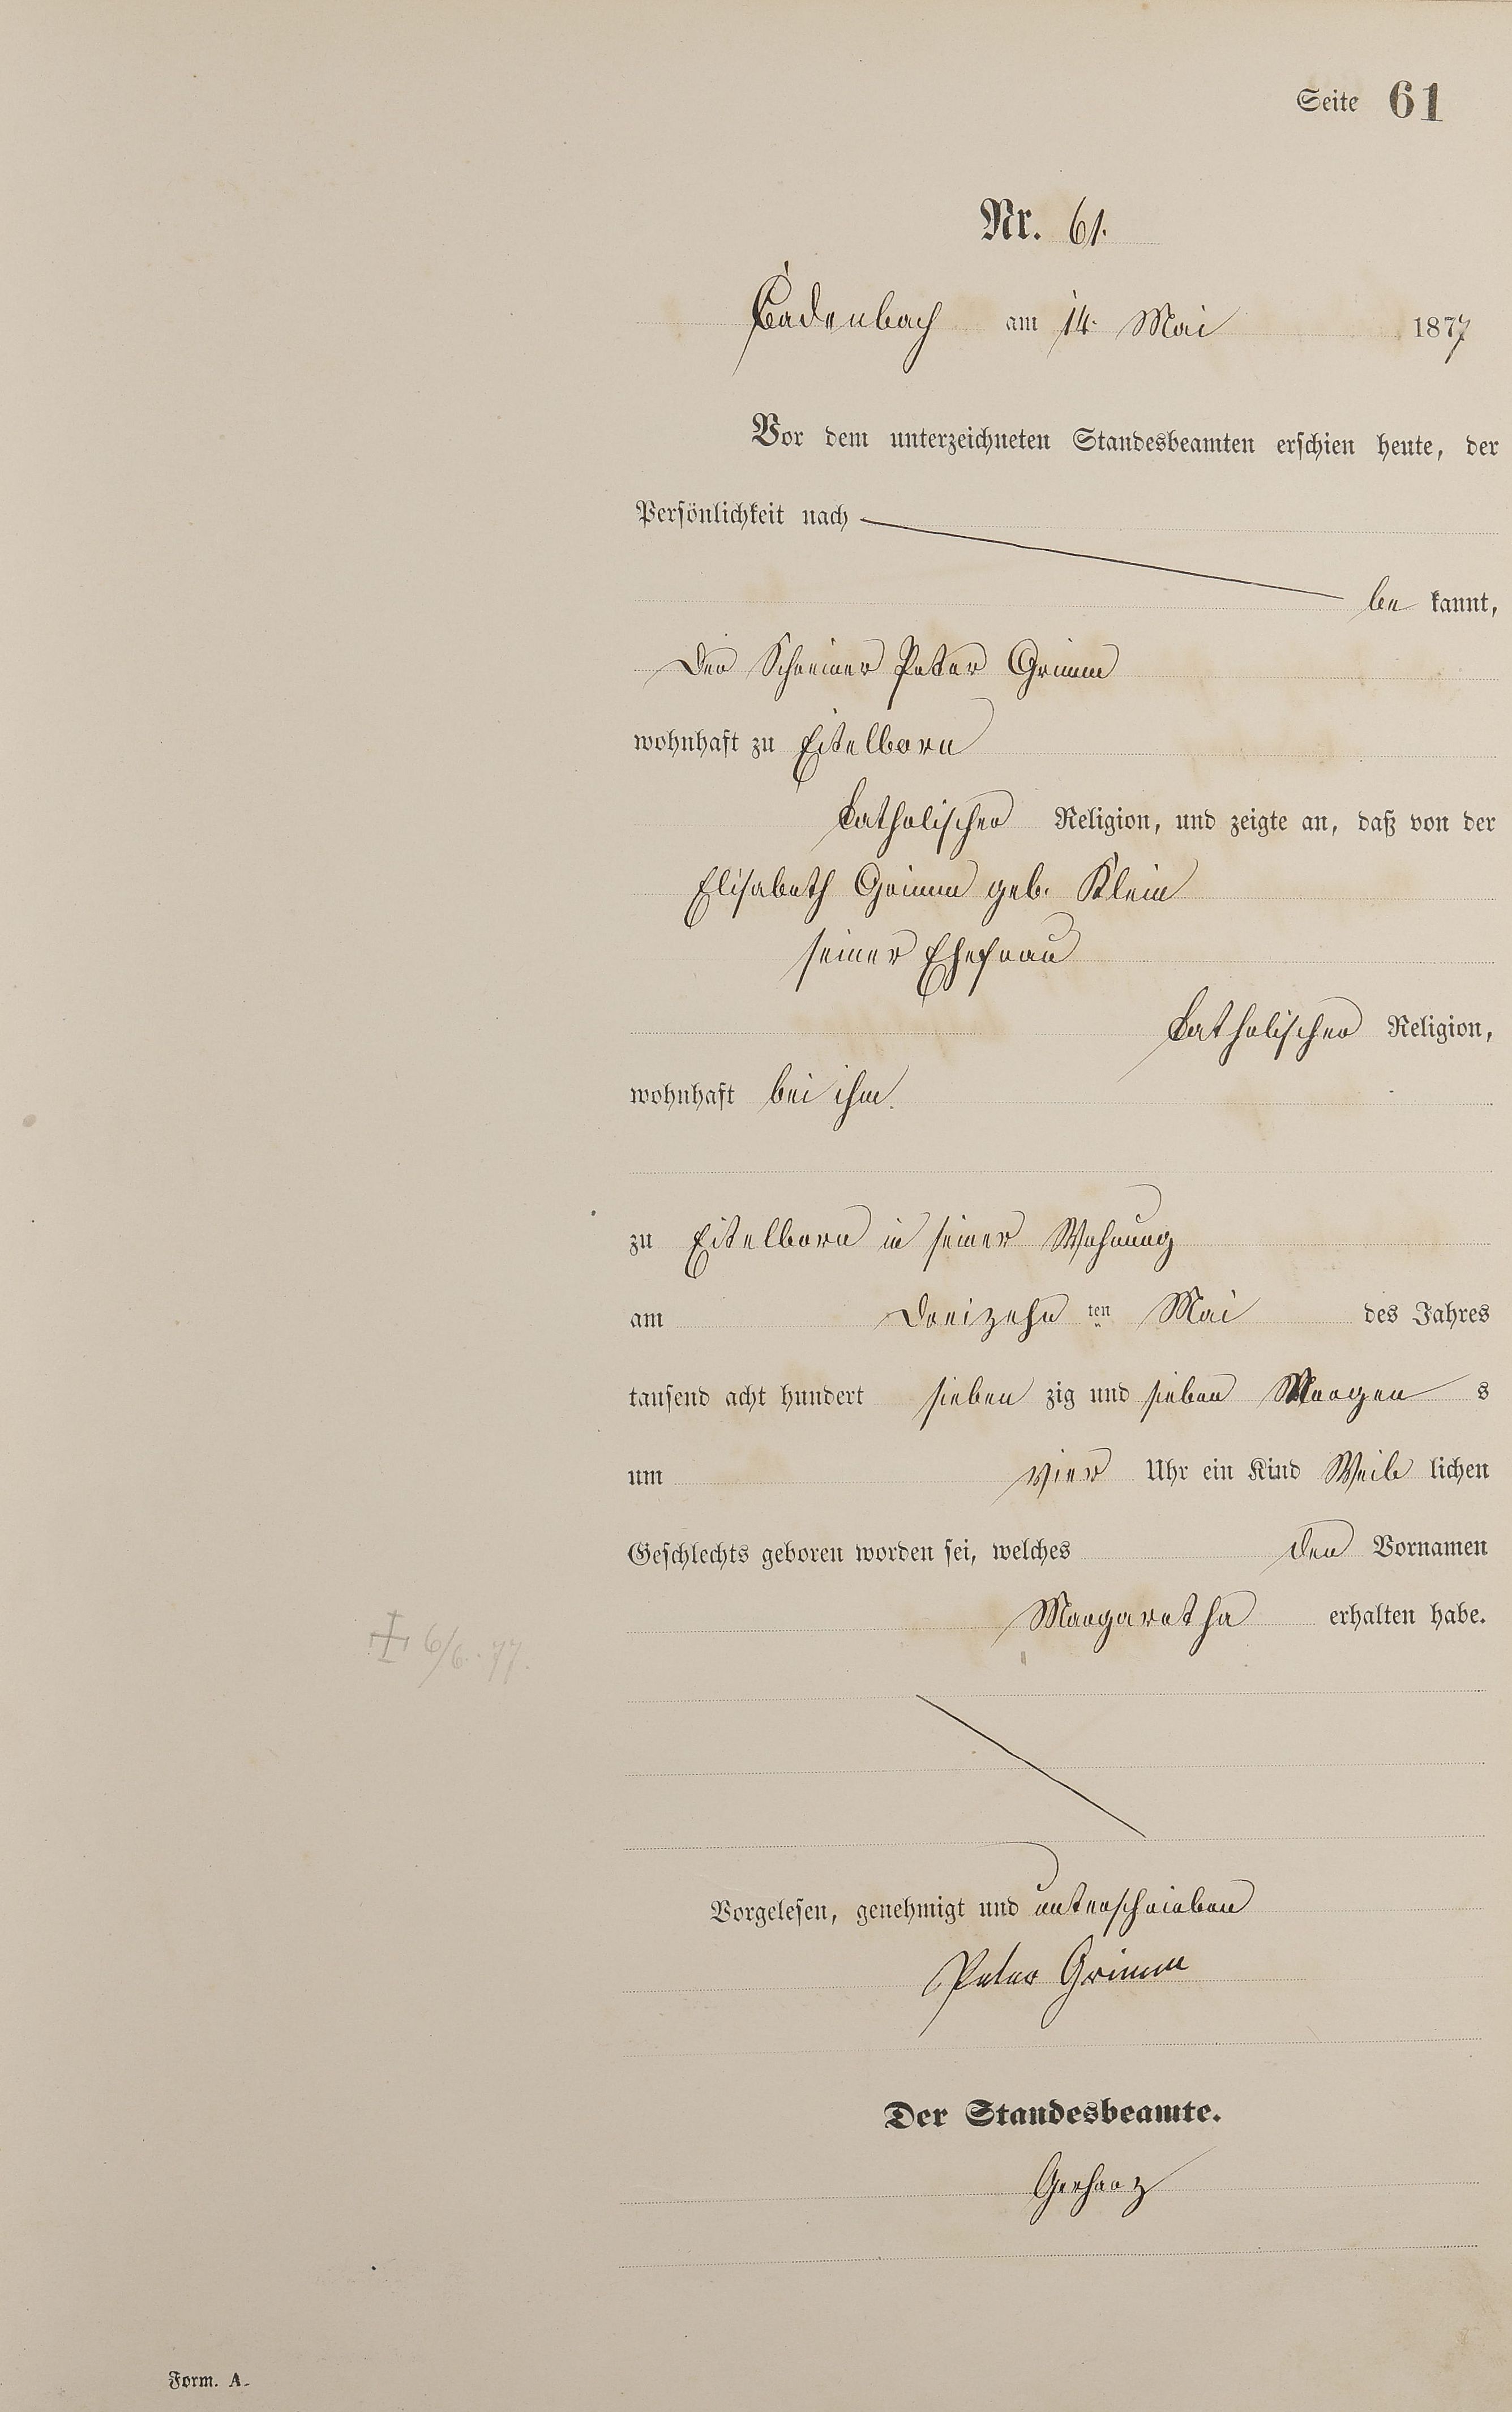 Seite 61
Nr. 61.
Cadenbach am 14. Mai 1877
Vor dem unterzeichneten Standesbeamten erschien heute, der
Persönlichkeit nach
be kannt,
Der Schreiner Peter Grimm
wohnhaft zu Eitelborn
katholischer Religion, und zeigte an, daß von der
Elisabeth Grimm geb. Klein
seiner Ehefrau
katholischer Religion,
wohnhaft bei ihm.
zu Eitelborn in seiner Wohnung
am dreizehn ten Mai des Jahres
tausend acht hundert sieben zig und sieben Morgen s
um vier Uhr ein Kind Weib lichen
Geschlechts geboren worden sei, welches den Vornamen
Margaretha erhalten habe.
+ 6/6. 77.
Vorgelesen, genehmigt und unterschrieben
Peter Grimm
Der Standesbeamte.
Gerharz
Form. A.